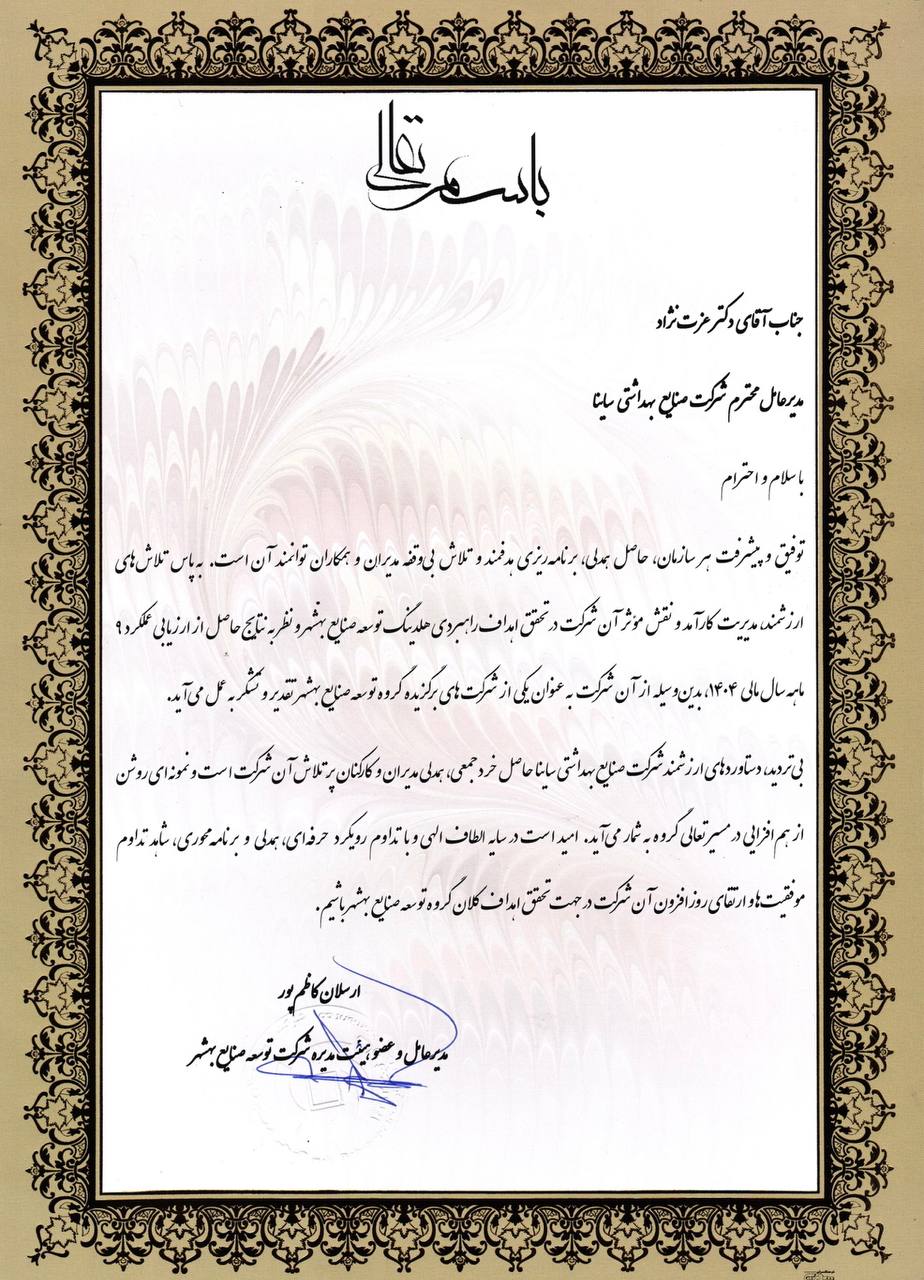 باسمه تعالی
جناب آقای دکتر عزت نژاد
مدیرعامل محترم شرکت صنایع بهداشتی ساینا
با سلام و احترام
توفیق و پیشرفت هر سازمان، حاصل همدلی، برنامه‌ریزی هدفمند و تلاش بی‌وقفه مدیران و همکاران توانمند آن است. به پاس تلاش‌های
ارزشمند، مدیریت کارآمد و نقش مؤثر آن شرکت در تحقق اهداف راهبردی هلدینگ توسعه صنایع بهشهر و نظر به نتایج حاصل از ارزیابی عملکرد ۹
ماهه سال مالی ۱۴۰۴، بدین‌وسیله از آن شرکت به عنوان یکی از شرکت های برگزیده گروه توسعه صنایع بهشهر تقدیر و تشکر به عمل می‌آید.
بی‌تردید، دستاوردهای ارزشمند شرکت صنایع بهداشتی ساینا حاصل خرد جمعی، همدلی مدیران و کارکنان پرتلاش آن شرکت است و نمونه ای روشن
از هم افزایی در مسیر تعالی گروه به شمار می‌آید. امید است در سایه الطاف الهی و با تداوم رویکرد حرفه‌ای، همدلی و برنامه‌محوری، شاهد تداوم
موفقیت‌ها و ارتقای روزافزون آن شرکت در جهت تحقق اهداف کلان گروه توسعه صنایع بهشهر باشیم.
ارسلان کاظم پور
مدیرعامل و عضو هیئت مدیره شرکت توسعه صنایع بهشهر